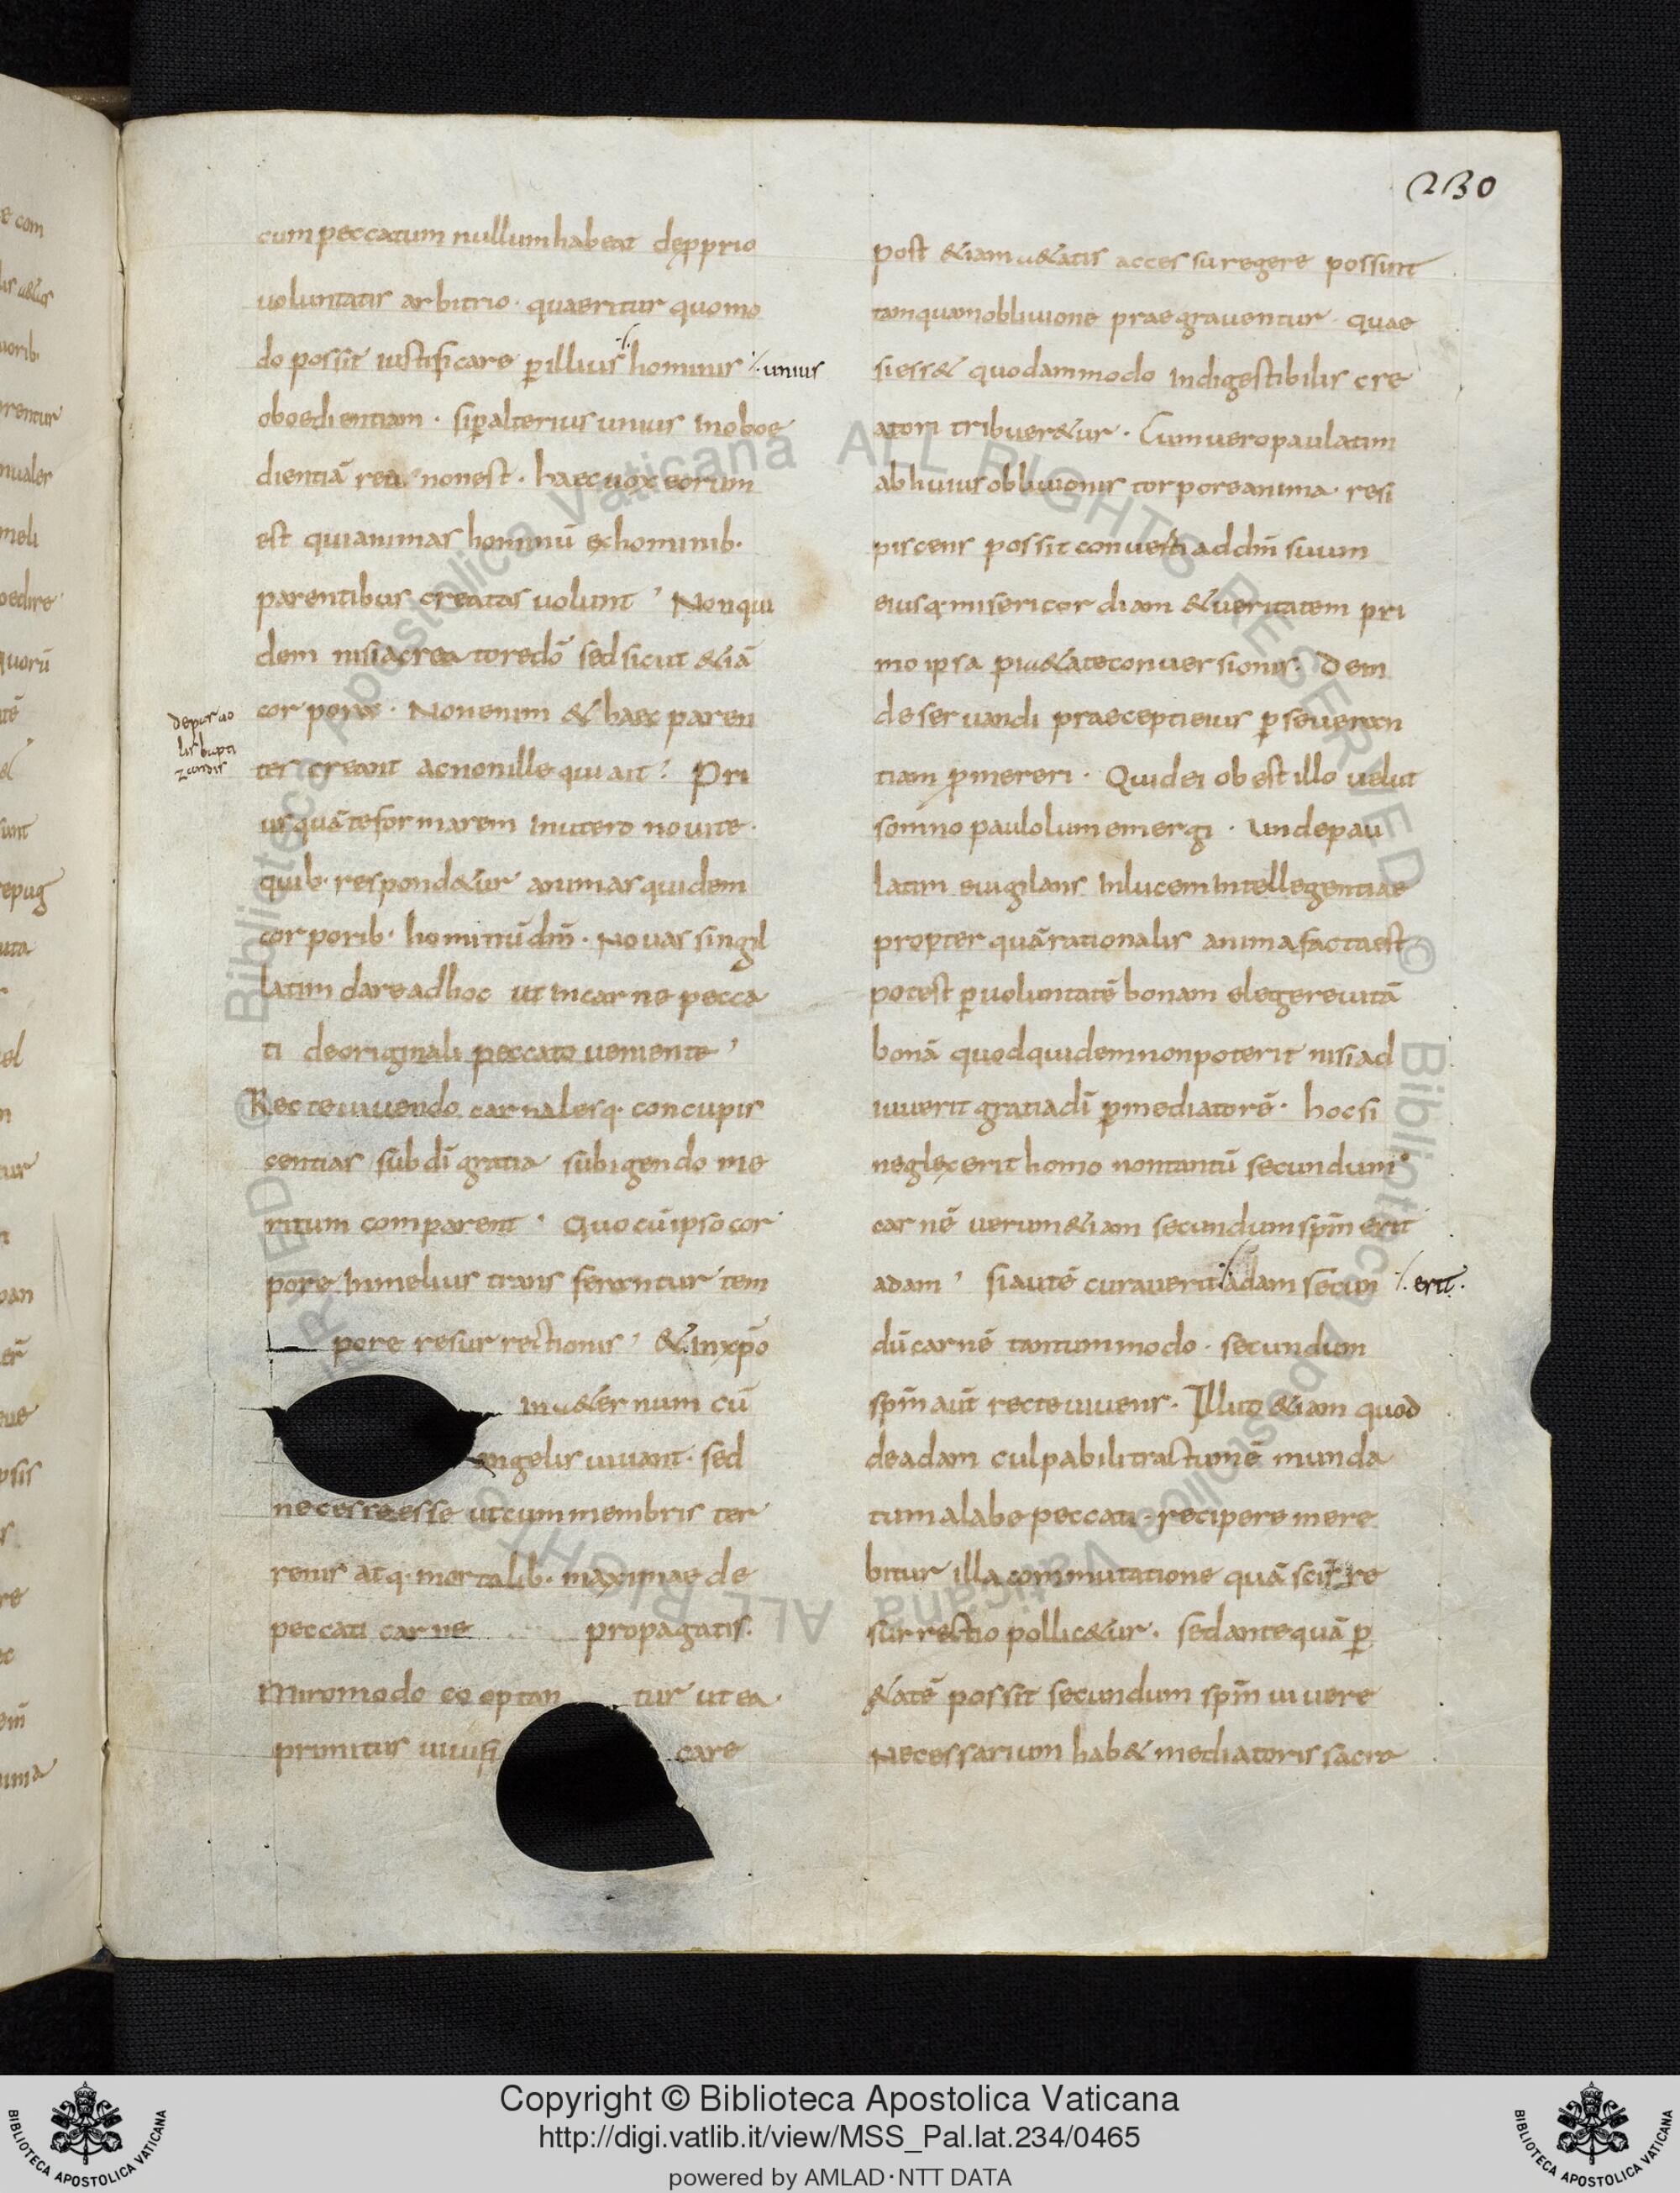 230
cum peccatum nullum habeat de p̱prio
uoluntatis arbitrio · quaeritur quomo
do possit iustificare ꝑ illius ⁒ hominis ⁒ unius
oboedientiam · si ꝑ alterius unius inoboe
dientiā rea non est · haec uox eorum
est qui animas hominū ex hominib·
parentibus creatas uolunt ' Non qui
dem nisi a creatore dō sed sicut &iā
corpora · Non enim & haec paren
de paruo
lis bapti
zandis
tes creant ac non ille qui ait : Pri
us quā te formarem in utero noui te ·
quib· respond&ur animas quidem
corporib· hominū dm̄ · Nouas singil
latim dare ad hoc ut in carne pecca
ti de originali peccato ueniente '
Recte uiuendo carnalesq· concupis
centias sub dī gratia subigendo me
ritum comparent · quo cū ipso cor
pore in melius transferantur tem
pore resurrectionis ' & in xp̄o
in a&ernum cū
angelis uiuant · sed
necesse esse ut cum membris ter
renis atq· mortalib· maximae de
peccati carne propagatis ·
Miro modo cooptan tur ut ea
primitus uiuifi care
post &iam a&atis accessu regere possint
tanquam obliuione praegrauentur · quae
si ess& quodammodo indigestibilis cre
atori tribuer&ur · Cum uero paulatim
ab huius obliuionis torpore anima resi
piscens possit conuerti ad dm̄ suum
eiusq· misericordiam & ueritatem pri
mo ipsa pi&ate conuersionis · Dein
de seruandi praecepti eius ꝑseueran
tiam ꝑmereri · Quid ei obest illo uelut
somno paulolum emergi · unde pau
latim euigilans in lucem intellegentiae
propter quā rationalis anima facta est
potest ꝑ uoluntatē bonam elegere uitā
bonā quod quidem non poterit nisi ad
iuuerit gratia dī ꝑ mediatorē · hoc si
neglexerit homo non tantū secundum
carnē uerum &iam secundum spm̄ erit
adam ' si autē curauerit ⁒ adam secun ⁒ erit ·
dū carnē tantummodo · secundum
spm̄ aut̄ recte uiuens · Illut &iam quod
de adam culpabili tractum ē munda
tum a labe peccati · recipere mere
bitur illa commutatione quā sc̄is re
surrectio pollic&ur · sed antequā ꝑ
&atē possit secundum spm̄ uiuere
Necessarium hab& mediatoris sacra
Copyright © Biblioteca Apostolica Vaticana
http://digi.vatlib.it/view/MSS_Pal.lat.234/0465
powered by AMLAD·NTT DATA
BIBLIOTECA APOSTOLICA VATICANA
BIBLIOTECA APOSTOLICA VATICANA